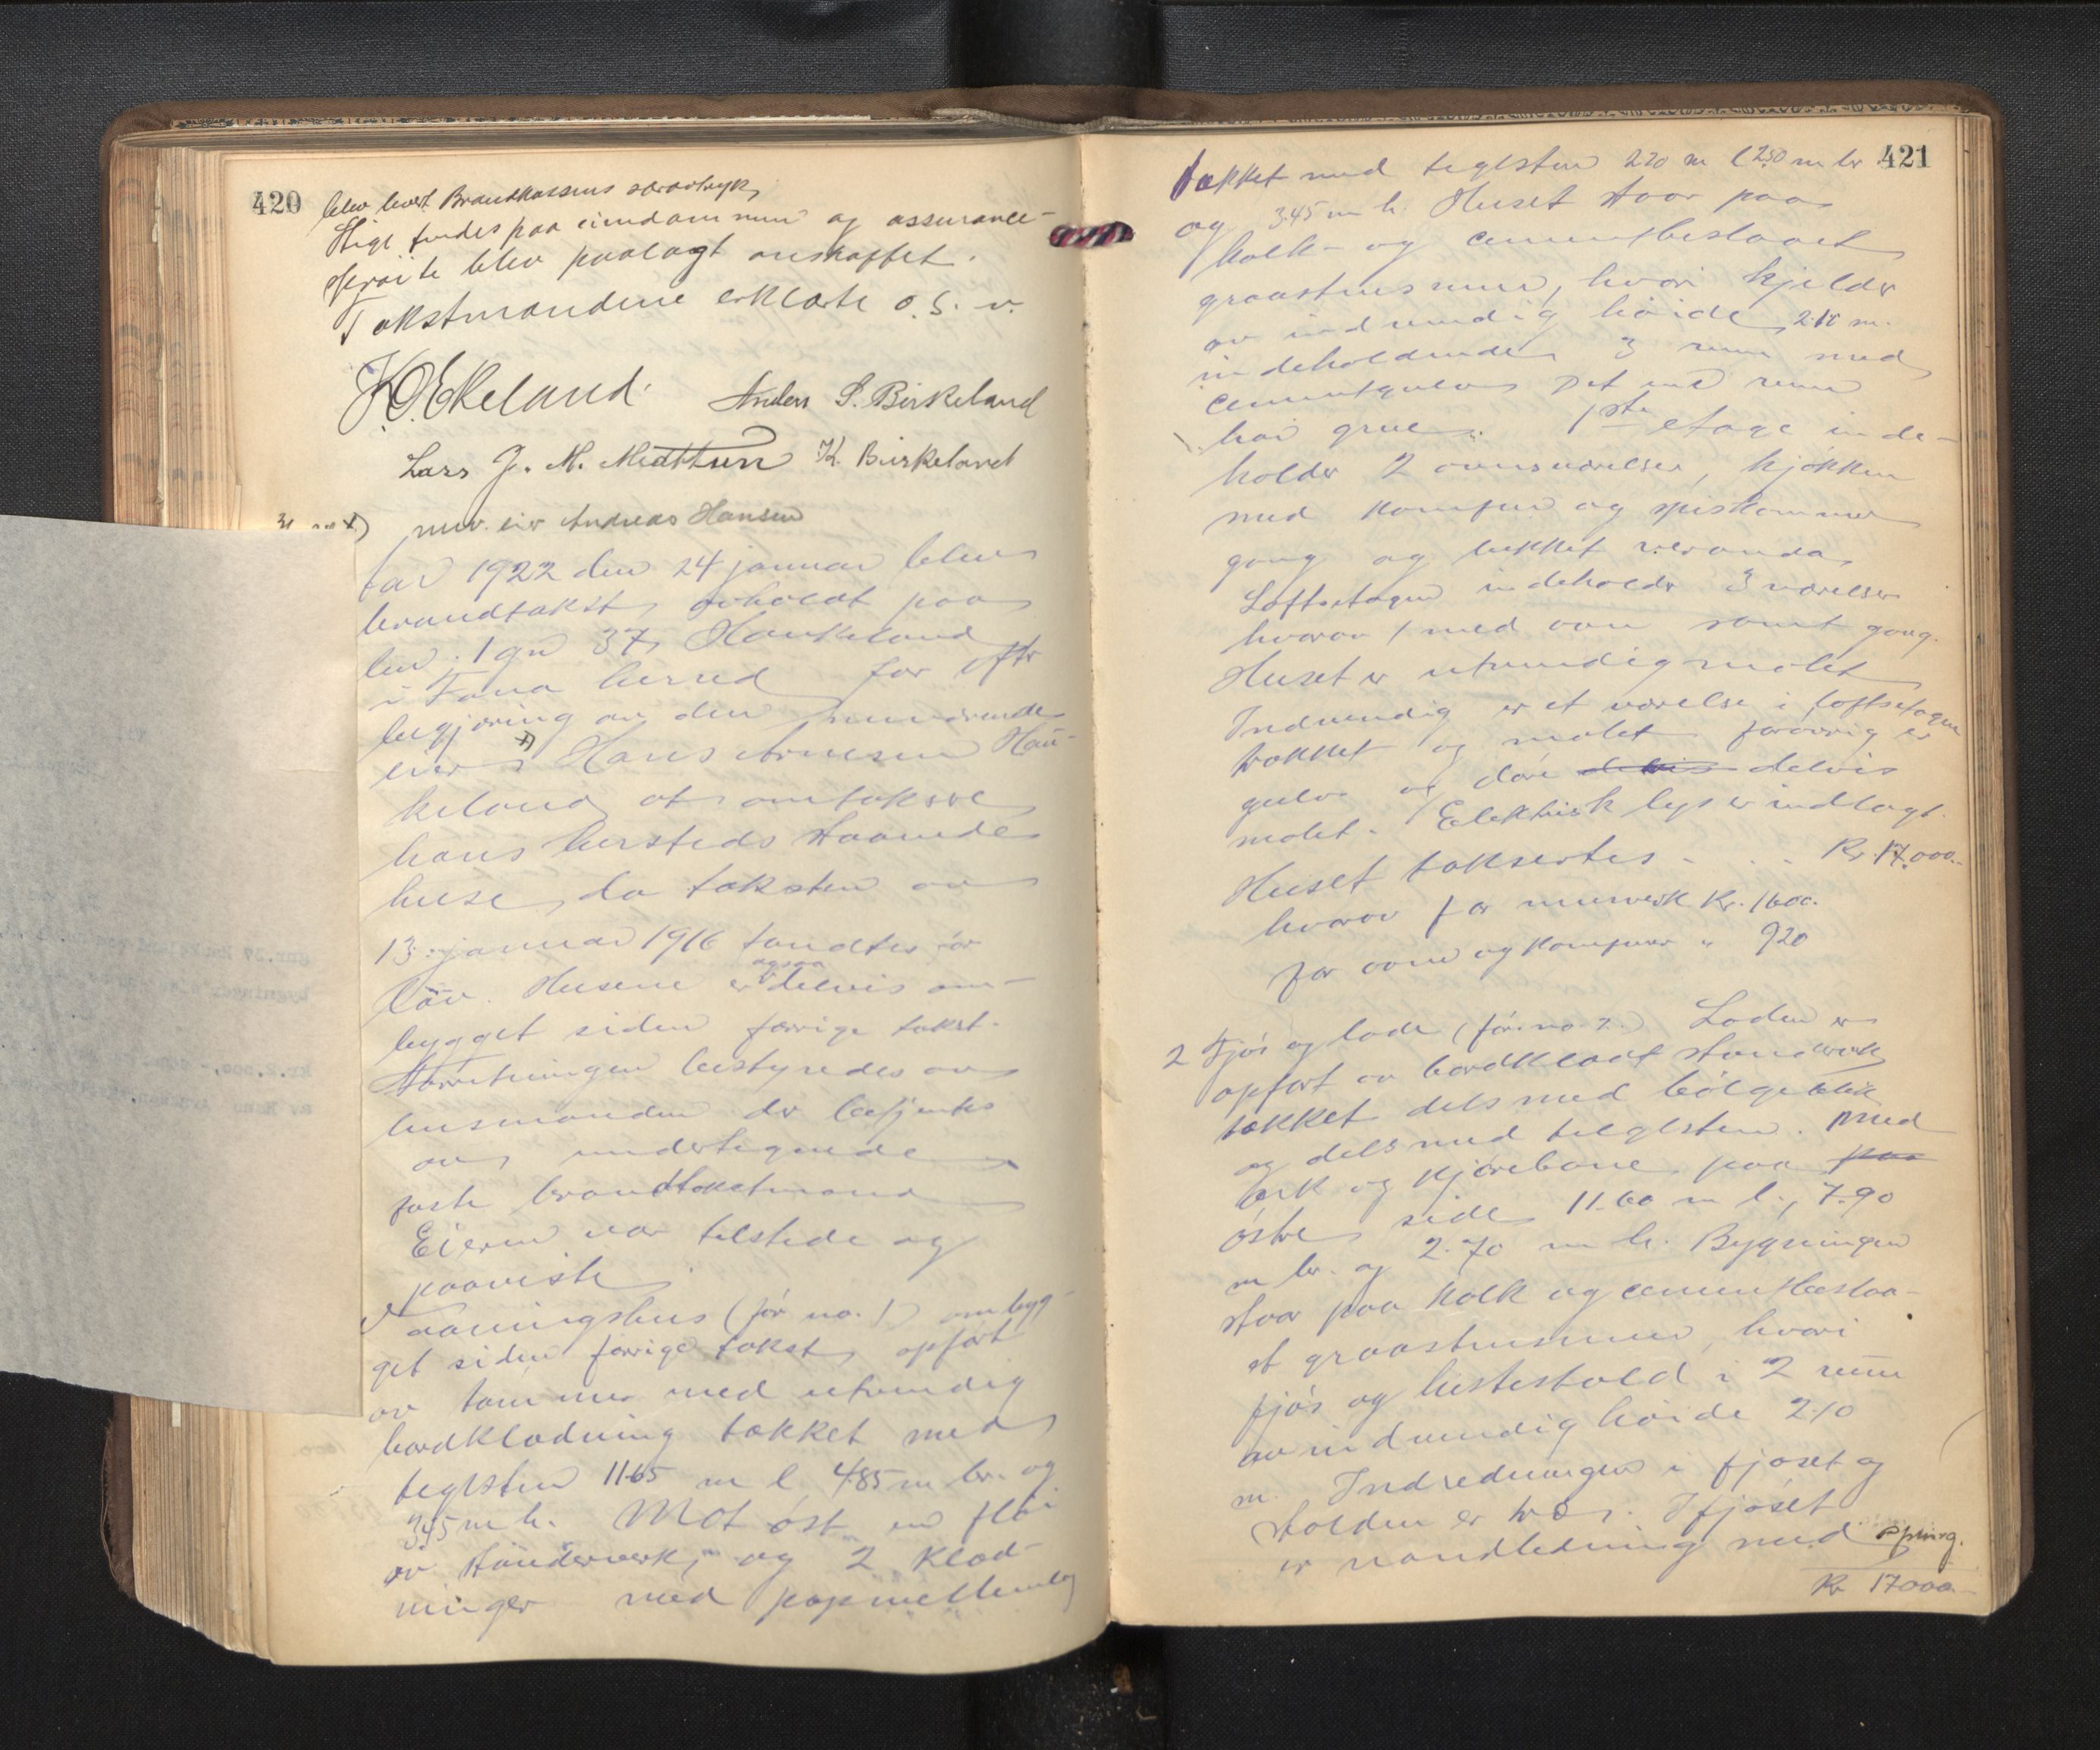 420
blev levert Brandkassens særavtryk,
Stige findes paa eiendommen og assurance-
sprøite blev paalagt anskaffet.
Takstmændene erklærte o.s.v.
K. O. Ekeland. Anders S. Birkeland
Lars J. M. Midttun K. Birkeland
x) nuv. eier Andreas Hansen
Aar 1922 den 24 januar blev
brandtakst avholdt paa
br. 1 gn 37 Haukeland
i Fana herred for efter
begjæring av den nuværende
eier x) Hans Arnesen Hau-
keland at omtaksere
hans hersteds staaende
huse, da taksten av
13. januar 1916 fandtes for
lav. Husene er ogsaa delvis om-
bygget siden forrige takst.
Forretningen bestyredes av
lensmanden der betjentes
av undertegnede
faste brandtakstmænd
Eieren var tilstede og
paaviste
Vaaningshus (før no. 1) ombyg-
get siden forrige takst, opført
av tømmer med utvendig
bordklædning tækket med
teglsten 11.65 m l 4.85 m br. og
3.45 m h. Mot øst en fløi
av stenderverk, og 2 klæd-
ninger med papmellemlæg
421
tækket med teglsten 2.20 m l 2.50 m br
og 3.45 m h. Huset staar paa
kalk- og cementbeslaaet
graastensmur, hvori kjelder
av indvendig høide 2.10 m.
indeholdende 3 rum med
cementgulv Det ene rum
har grue. 1ste etage inde-
holder 2 ovnsværelser, kjøkken
med komfur og spiskammer
gang og lukket veranda,
Loftsetagen indeholder 3 værelser
hvorav 1 med ovn samt gang.
Huset er utvendig malet
Indvendig er et værelse i loftsetagen
trækket og malet forøvrig er
gulve og døre delvis delvis
malet. Elektrisk lys er indlagt.
Huset takseres - . . Kr. 17.000.-
hvorav for murverk Kr. 1600.
for ovne og komfurer " 920
2 Fjøs og lade (før no. 2.) Laden er
opført av bordklædt stenderverk
tækket dels med bølgeblik
og dels med teglsten. med
ark og kjørebane paa paa
østre side 11.60 m l., 7.90
m br. og 2.70 m h. Bygningen
staar paa kalk og cementbeslaa-
et graastensmur, hvori
fjøs og hestestald i 2 rum
av indvendig høide 2.10
m. Indredningen i fjøset og
stalden er træ. I fjøset
er vandledning med spring.
Kr 17000.-